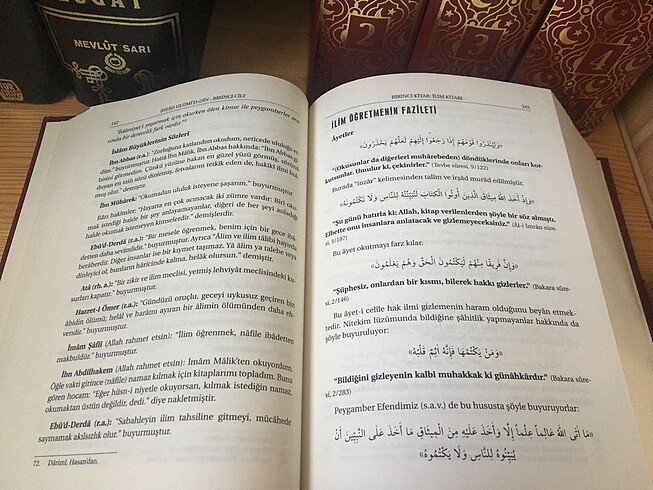 LÛGAT
MEVLÛT SARI
2
3
4
142
İHYÂU ULÛMİ'D-DÎN - BİRİNCİ CİLT
"İslâmiyet'i yaşatmak için okurken ölen kimse ile peygamberler ara-
sında bir derecelik fark vardır."
İslâm Büyüklerinin Sözleri
İbn Abbas (r.a.): "Zorluğuna katlandım okudum, neticede ululuğa er-
dim." buyurmuştur. Hattâ İbn Mübârek, İbn Abbas hakkında: "İbn Abbas gi-
bisini görmedim. Çünkü yüzüne bakan en güzel yüzü görmüş, sözünü
duyan en tatlı sözü dinlemiş, fetvalarını tetkik eden de, hakikî ilmi bul-
muş olur." demiştir.
İbn Mübârek: "Okumadan ululuk isteyene şaşarım." buyurmuştur.
Bâzı hakîmler: "Hayatta en çok acınacak iki zümre vardır: Biri oku-
mak istediği halde bir şey anlayamayanlar, diğeri de her şeyi anladığı
halde okumak istemeyen kimselerdir." demişlerdir.
Ebü'd-Derdâ (r.a.): "Bir mesele öğrenmek, benim için bir gece ibâ-
detten daha sevimlidir." buyurmuştur. Ayrıca "Âlim ve ilim tâlibi hayırda
beraberdir. Diğer insanlar ise bir kıymet taşımaz. Yâ âlim ya talebe veya
dinleyici ol; bunların hâricinde kalma, helâk olursun." demiştir.
Atâ (rh. a.): "Bir zikir ve ilim meclisi, yetmiş lehviyât meclisindeki ku-
surları kapatır." buyurmuştur.
Hazret-i Ömer (r.a.): "Gündüzü oruçlu, geceyi uykusuz geçiren bin
âbidin ölümü; helâl ve harâmı ayıran bir âlimin ölümünden daha eh-
vendir." buyurmuştur.
İmâm Şâfiî (Allah rahmet etsin): "İlim öğrenmek, nâfile ibâdetten
makbuldür." buyurmuştur.
İbn Abdilhakem (Allah rahmet etsin): İmâm Mâlik'ten okuyordum.
Öğle vakti girince (nâfile) namaz kılmak için kitaplarımı topladım. Bunu
gören hocam: "Eğer hüsn-i niyetle okuyorsan, kılmak istediğin namaz,
okumaktan üstün değildir, dedi." diye nakletmiştir.
Ebü'd-Derdâ (r.a.): "Sabahleyin ilim tahsiline gitmeyi, mücâhede
saymamak akılsızlık olur." buyurmuştur.
72. Dârimî, Hasan'dan.
BİRİNCİ KİTAB: İLİM KİTABI
143
İLİM ÖĞRETMENİN FAZİLETİ
Âyetler
«وَلِيُنْذِرُوا قَوْمَهُمْ إِذَا رَجَعُوا إِلَيْهِمْ لَعَلَّهُمْ يَحْذَرُونَ»
"(Okusunlar da diğerleri muhârebeden) döndüklerinde onları kor-
kutsunlar. Umulur ki, çekinirler." (Tevbe sûresi, 9/122)
Burada "inzâr" kelimesinden talim ve irşâd murâd edilmiştir.
«وَإِذْ أَخَذَ اللهُ مِيثَاقَ الَّذِينَ أُوتُوا الْكِتَابَ لَتُبَيِّنُنَّهُ لِلنَّاسِ وَلَا تَكْتُمُونَهُ»
"Şu günü hatırla ki: Allah, kitap verilenlerden şöyle bir söz almıştı.
Elbette onu insanlara anlatacak ve gizlemeyeceksiniz." (Âl-i İmrân sûre-
si, 3/187)
Bu âyet okutmayı farz kılar.
«وَإِنَّ فَرِيقًا مِنْهُمْ لَيَكْتُمُونَ الْحَقَّ وَهُمْ يَعْلَمُونَ»
"Şüphesiz, onlardan bir kısmı, bilerek hakkı gizlerler." (Bakara sûre-
si, 2/146)
Bu âyet-i celîle hak ilmi gizlemenin haram olduğunu beyân etmek-
tedir. Nitekim lüzûmunda bildiğine şâhitlik yapmayanlar hakkında da
şöyle buyuruluyor:
«وَمَنْ يَكْتُمْهَا فَإِنَّهُ آثِمٌ قَلْبُهُ»
"Bildiğini gizleyenin kalbi muhakkak ki günâhkârdır." (Bakara sûre-
si, 2/283)
Peygamber Efendimiz (s.a.v.) de bu hususta şöyle buyuruyorlar:
«مَا آتَى اللهُ عَالِمًا عِلْمًا إِلَّا وَأَخَذَ عَلَيْهِ مِنَ الْمِيثَاقِ مَا أَخَذَ عَلَى النَّبِيِّينَ أَنْ
يُبَيِّنُوهُ لِلنَّاسِ وَلَا يَكْتُمُوهُ»